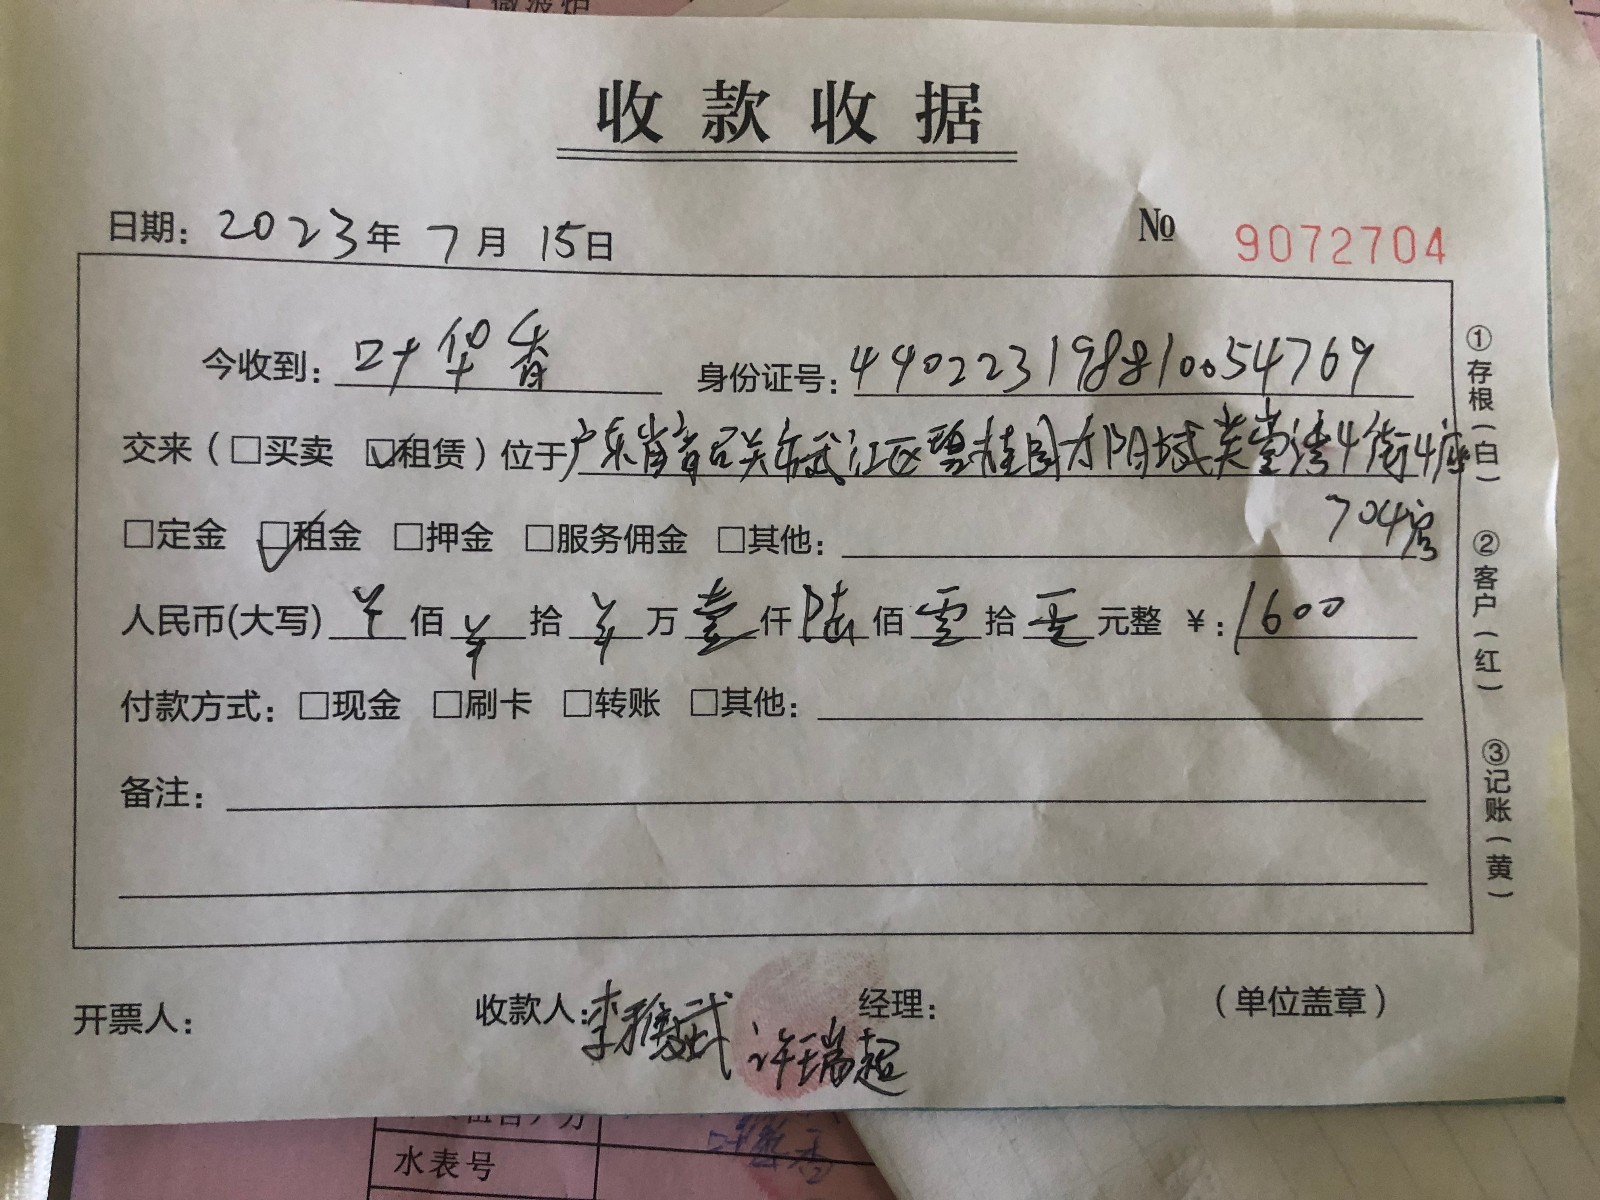 微波炉
收款收据
日期: 2023年 7月 15日 № 9072704
今收到: 叶华香 身份证号: 440223198810054769
交来(□买卖 ☑租赁)位于广东省韶关市武江区碧桂园太阳城芙蓉湾4街4座
704房
□定金 ☑租金 □押金 □服务佣金 □其他:
人民币(大写) ¥ 佰 ¥ 拾 ¥ 万 壹 仟 陆 佰 零 拾 零 元整 ¥: 1600
付款方式: □现金 □刷卡 □转账 □其他:
备注:
开票人: 收款人: 李雅斌 经理: (单位盖章)
许瑞超
①存根(白) ②客户(红) ③记账(黄)
水表号